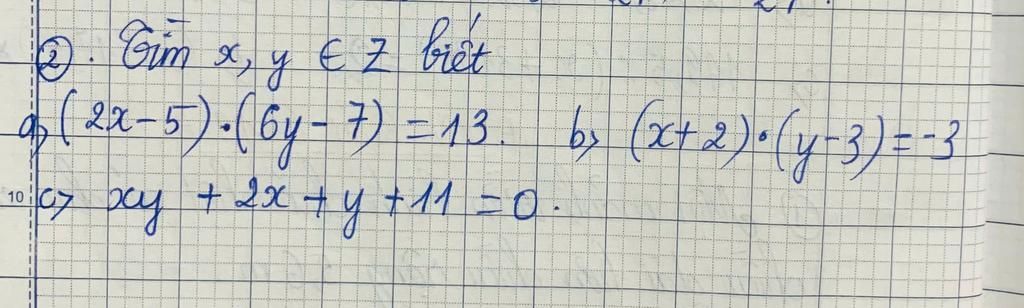 ②. Tìm x, y ∈ Z biết
a) (2x-5).(6y-7) = 13. b) (x+2).(y-3) = -3
10 c) xy + 2x + y + 11 = 0.